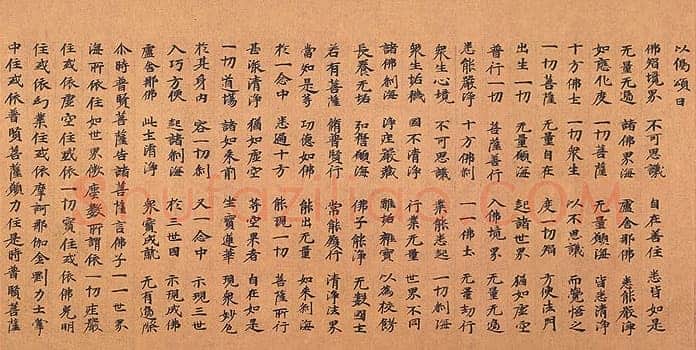 以偈頌曰
佛刹境界 不可思議 自在善住 悉皆如是
无量无邊 諸佛界海 盧舍那佛 悉能嚴淨
如應化度 一切菩薩 无量願海 皆悉清淨
十方佛土 一切衆生 以不思議 而覺悟之
一切菩薩 无量自在 度一切刹 方便法門
出生一切 无量願海 起諸世界 猶如虛空
普行一切 菩薩善行 入佛境界 无量无邊
悉能嚴淨 十方佛刹 一一佛土 无量劫行
衆生心境 不可思議 業能悉起 一切刹海
衆生垢穢 國不清淨 行業无量 世界不同
諸佛刹海 淨莊嚴藏 離垢雜寶 以為校餝
長養无垢 和智願海 佛子能淨 无數國土
若有菩薩 脩普賢行 常能履行 清淨法界
當知是等 功德如佛 能出无量 如來刹海
於一念中 悉遍十方 能現一切 菩薩所行
甚深清淨 猶如虛空 等空界者 自在如是
一切道場 諸如來前 坐寶蓮華 現衆妙色
於其身內 容一切刹 又一念中 示現三世
入巧方便 起諸刹海 於三世國 示現成佛
盧舍那佛 此土清淨 衆寶成就 无有過隙
尒時普賢菩薩告諸菩薩言佛子一一世界
海所依住如世界微塵數所謂依一切莊嚴
住或依虛空住或依一切寶住或依佛光明
住或依幻業住或依摩訶那伽金剛力士掌
中住或依普賢菩薩願力住是時普賢菩薩
Shufaziliao.COM